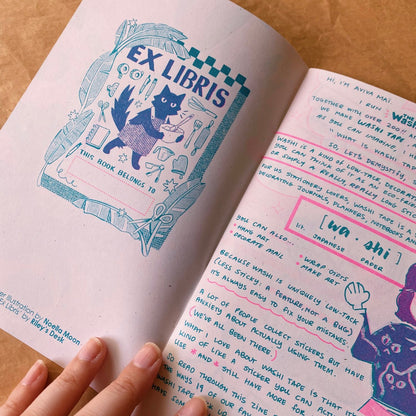 EX LIBRIS
THIS BOOK BELONGS TO
illustration by Noella Moon
Ex Libris by Riley's Desk
HI, I'M AVIVA MAI
I RUN
TOGETHER WITH OVER
WE MAKE WASHI TAPE
AS YOU CAN IMAGINE,
"WHAT IS WASHI
SO, LET'S DEMYSTIFY
WASHI IS A KIND OF LOW-TACK DECORATIVE
YOU CAN THINK OF IT AS AN ECO-FRIENDLY
OR SIMPLY A REALLY, REALLY LONG
US STATIONERY LOVERS, WASHI TAPE IS A
DECORATING JOURNALS, PLANNERS, NOTEBOOKS
[wa·shi]
JAPANESE PAPER
YOU CAN ALSO...
* HANG ART
* DECORATE MAIL
* WRAP GIFTS
* MAKE ART
BECAUSE WASHI IS UNIQUELY LOW-TACK
(LESS STICKY, A FEATURE, NOT A BUG)
IT'S ALWAYS EASY TO FIX YOUR MISTAKES.
A LOT OF PEOPLE COLLECT STICKERS BUT HAVE
ANXIETY ABOUT ACTUALLY USING THEM.
(WE'VE ALL BEEN THERE)
WHAT I LOVE ABOUT WASHI TAPE IS THAT
KIND OF LIKE A STICKER YOU CAN
USE *AND* STILL HAVE MORE FOR
SO READ THROUGH THIS
THE WAYS 19 OF OUR FAV
WASHI TAPE
HAVE SOME